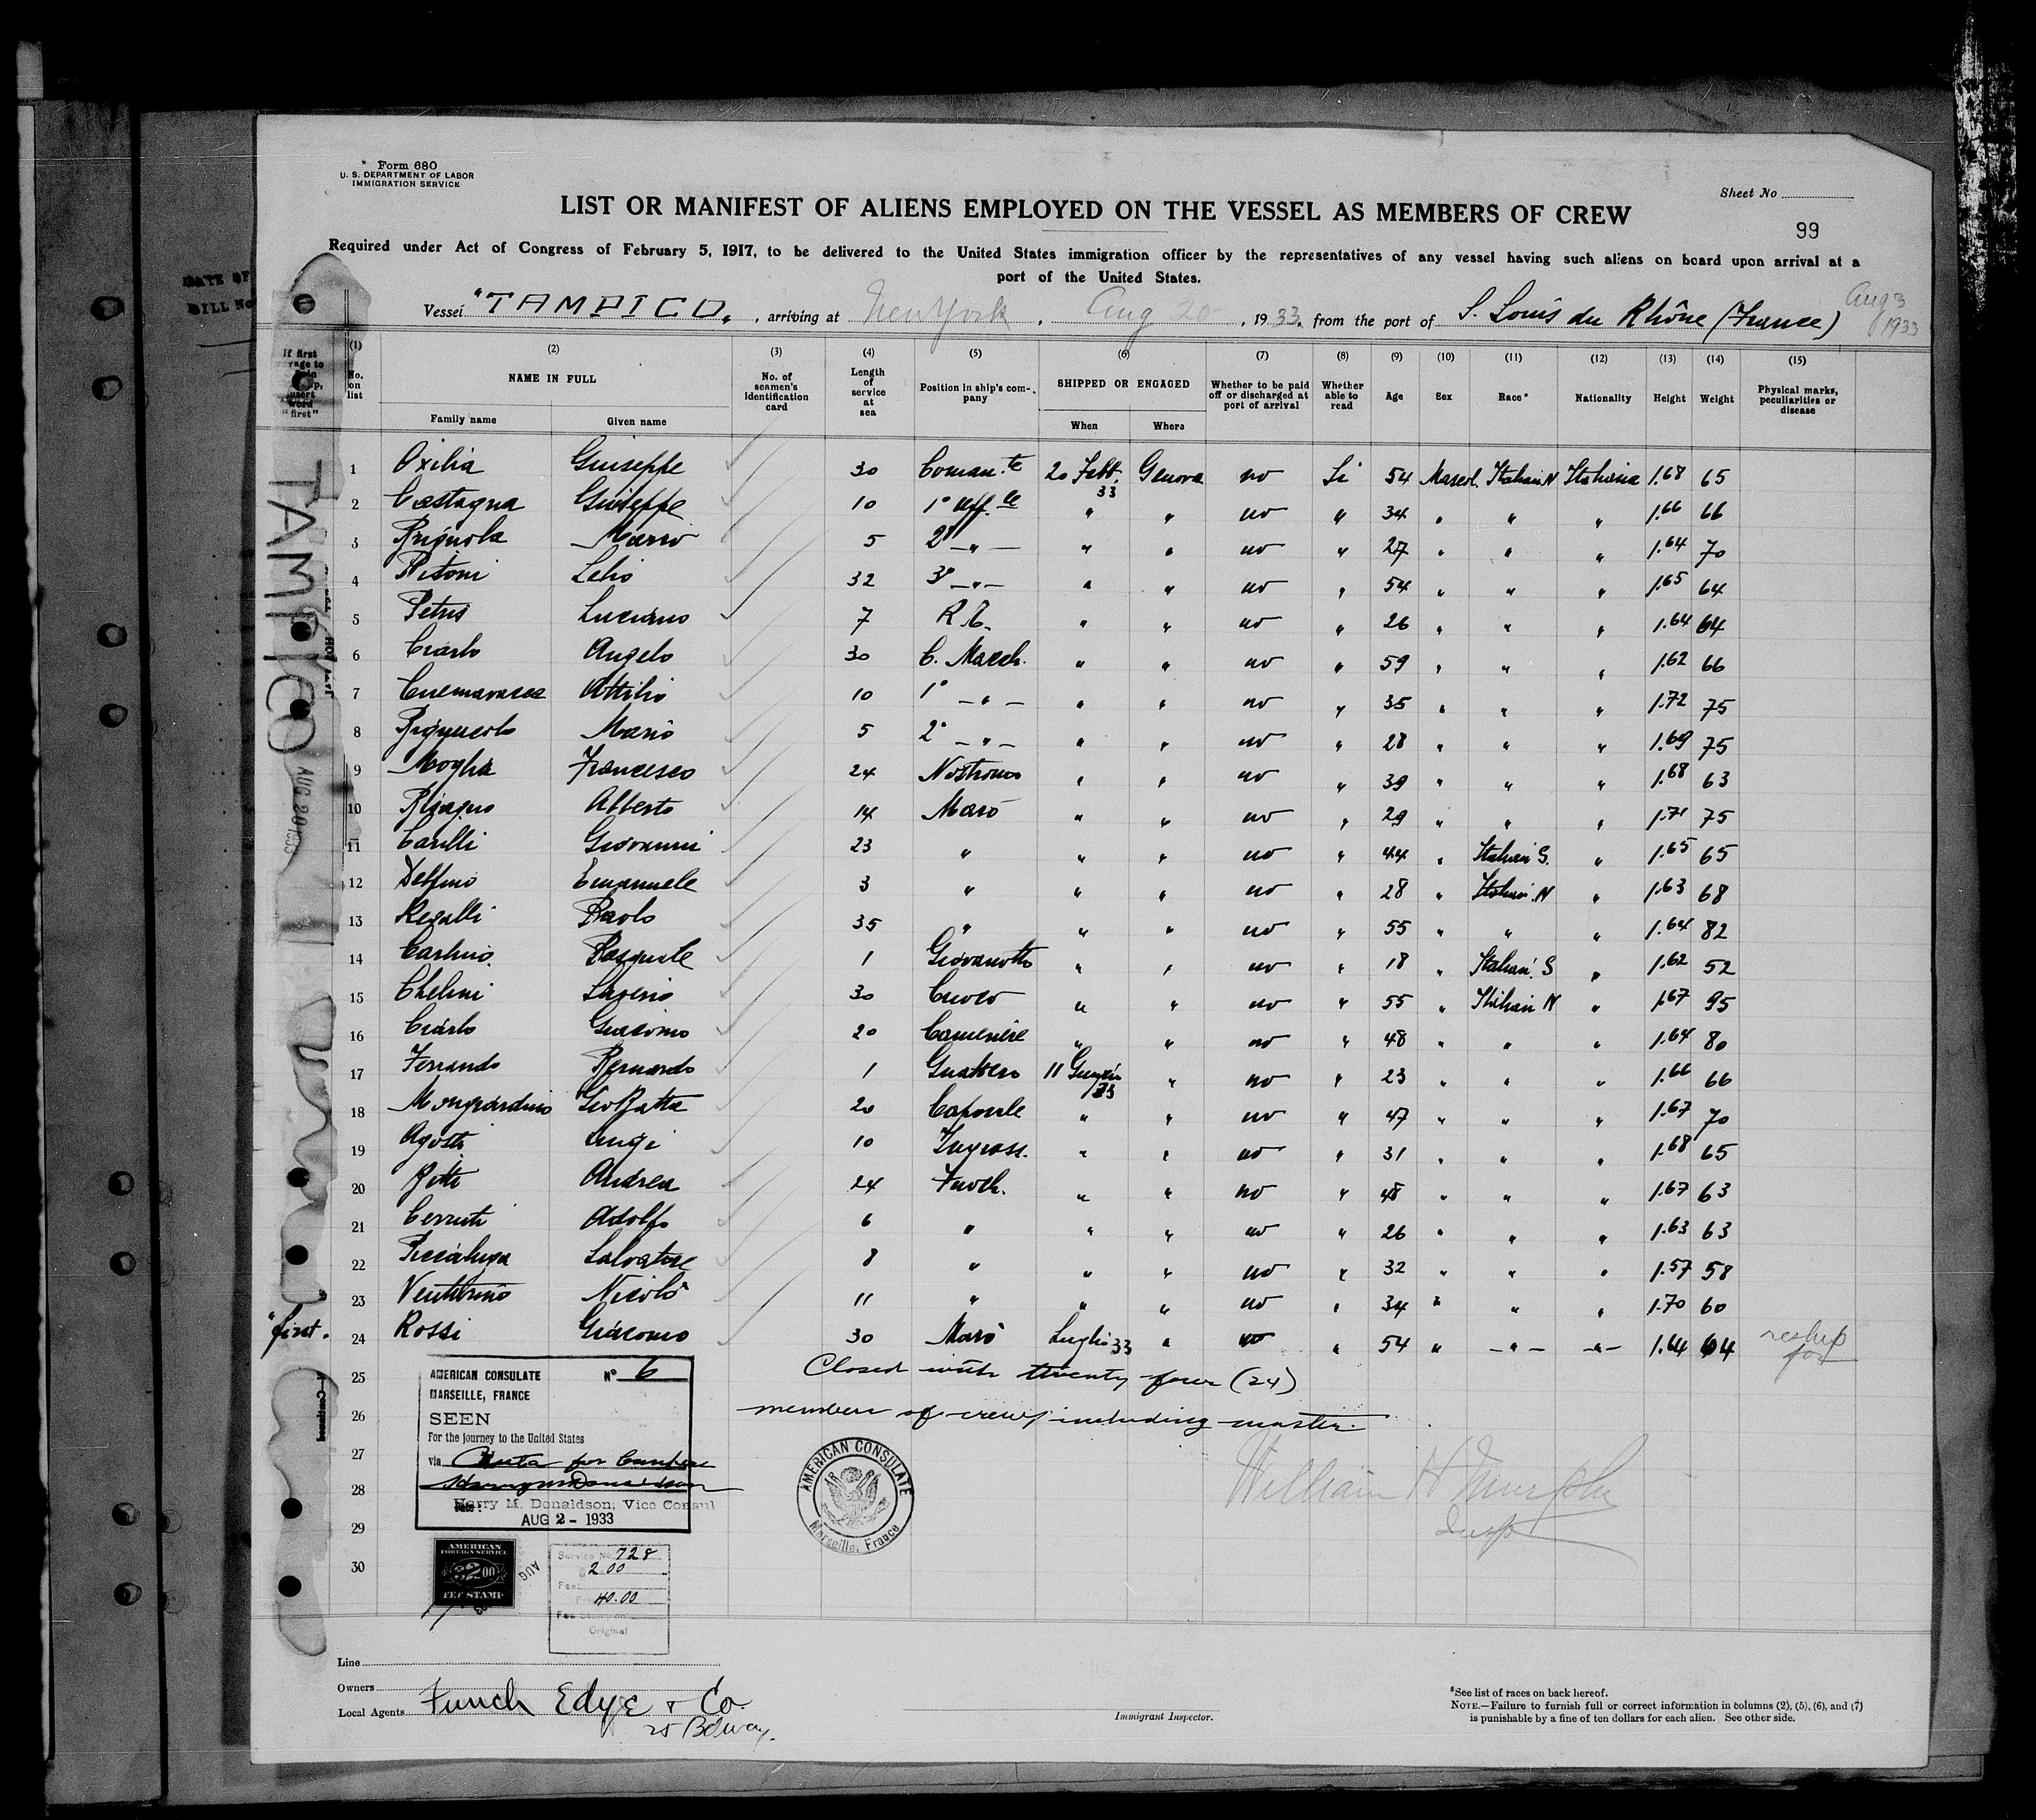 Form 680
U. S. DEPARTMENT OF LABOR
IMMIGRATION SERVICE
Sheet No
LIST OR MANIFEST OF ALIENS EMPLOYED ON THE VESSEL AS MEMBERS OF CREW
99
Required under Act of Congress of February 5, 1917, to be delivered to the United States immigration officer by the representatives of any vessel having such aliens on board upon arrival at a
port of the United States.
Vessel "TAMPICO", arriving at New York, Aug 20, 1933, from the port of S. Louis du Rhône (France) Aug 3 1933
(1) (2) (3) (4) (5) (6) (7) (8) (9) (10) (11) (12) (13) (14) (15)
No. on list
NAME IN FULL
Family name
Given name
No. of seamen's identification card
Length of service at sea
Position in ship's company
SHIPPED OR ENGAGED
When
Where
Whether to be paid off or discharged at port of arrival
Whether able to read
Age
Sex
Race*
Nationality
Height
Weight
Physical marks, peculiarities or disease
1 Oxilia Giuseppe 30 Coman.te 20 Febb. 33 Genova no Si 54 Masch. Italian N Italiana 1.68 65
2 Castagna Giuseppe 10 1° Uff.le " " no " 34 " " " 1.66 66
3 Brignola Mario 5 2° -"- " " no " 27 " " " 1.64 70
4 Pitoni Lelio 32 3° -"- " " no " 54 " " " 1.65 64
5 Petris Luciano 7 R.T. " " no " 26 " " " 1.64 64
6 Ciarlo Angelo 30 C. Macch. " " no " 59 " " " 1.62 66
7 Attilio 10 1° -"- " " no " 35 " " " 1.72 75
8 Mario 5 2° -"- " " no " 28 " " " 1.69 75
9 Moglia Francesco 24 Nostromo " " no " 39 " " " 1.68 63
10 Alberto 14 Marò " " no " 29 " " " 1.71 75
11 Carilli Giovanni 23 " " " no " 44 " Italian S. " 1.65 65
12 Delfino Emanuele 3 " " " no " 28 " Italian N " 1.63 68
13 Regalli Paolo 35 " " " no " 55 " " " 1.64 82
14 Carlino Pasquale 1 Giovanotto " " no " 18 " Italian S " 1.62 52
15 Chelini Saverio 30 Cuoco " " no " 55 " Italian N " 1.67 95
16 Ciarlo Giacomo 20 Cameriere " " no " 48 " " " 1.64 80
17 Ferrando Bernardo 1 Guattero 11 33 " no " 23 " " " 1.66 66
18 Mongiardino Gio Batta 20 " " no " 47 " " " 1.67 70
19 Agosti Luigi 10 Ingrass. " " no " 31 " " " 1.68 65
20 Andrea 24 Fuoch. " " no " 48 " " " 1.67 63
21 Cerruti Adolfo 6 " " " no " 26 " " " 1.63 63
22 Piccaluga Salvatore 8 " " " no " 32 " " " 1.57 58
23 Venturino Nicolò 11 " " " no " 34 " " " 1.70 60
"first" 24 Rossi Giacomo 30 Marò Luglio 33 " no " 54 " -"- -"- 1.64 64
25 Closed with twenty four (24)
26 members of crew, including master.
27
28
29
30
TAMPICO
AUG 20 1933
AMERICAN CONSULATE No 6
MARSEILLE, FRANCE
SEEN
For the journey to the United States
via
Harry M. Donaldson, Vice Consul
AUG 2 - 1933
AMERICAN CONSULATE
Marseille, France
William H Murphy
Insp
AMERICAN
FOREIGN SERVICE
$2.00
FEE STAMP
Service No. 728
2.00
40.00
Original
Line
Owners
Local Agents Funch Edye & Co.
25 Bdway.
Immigrant Inspector.
*See list of races on back hereof.
NOTE.—Failure to furnish full or correct information in columns (2), (5), (6), and (7)
is punishable by a fine of ten dollars for each alien. See other side.